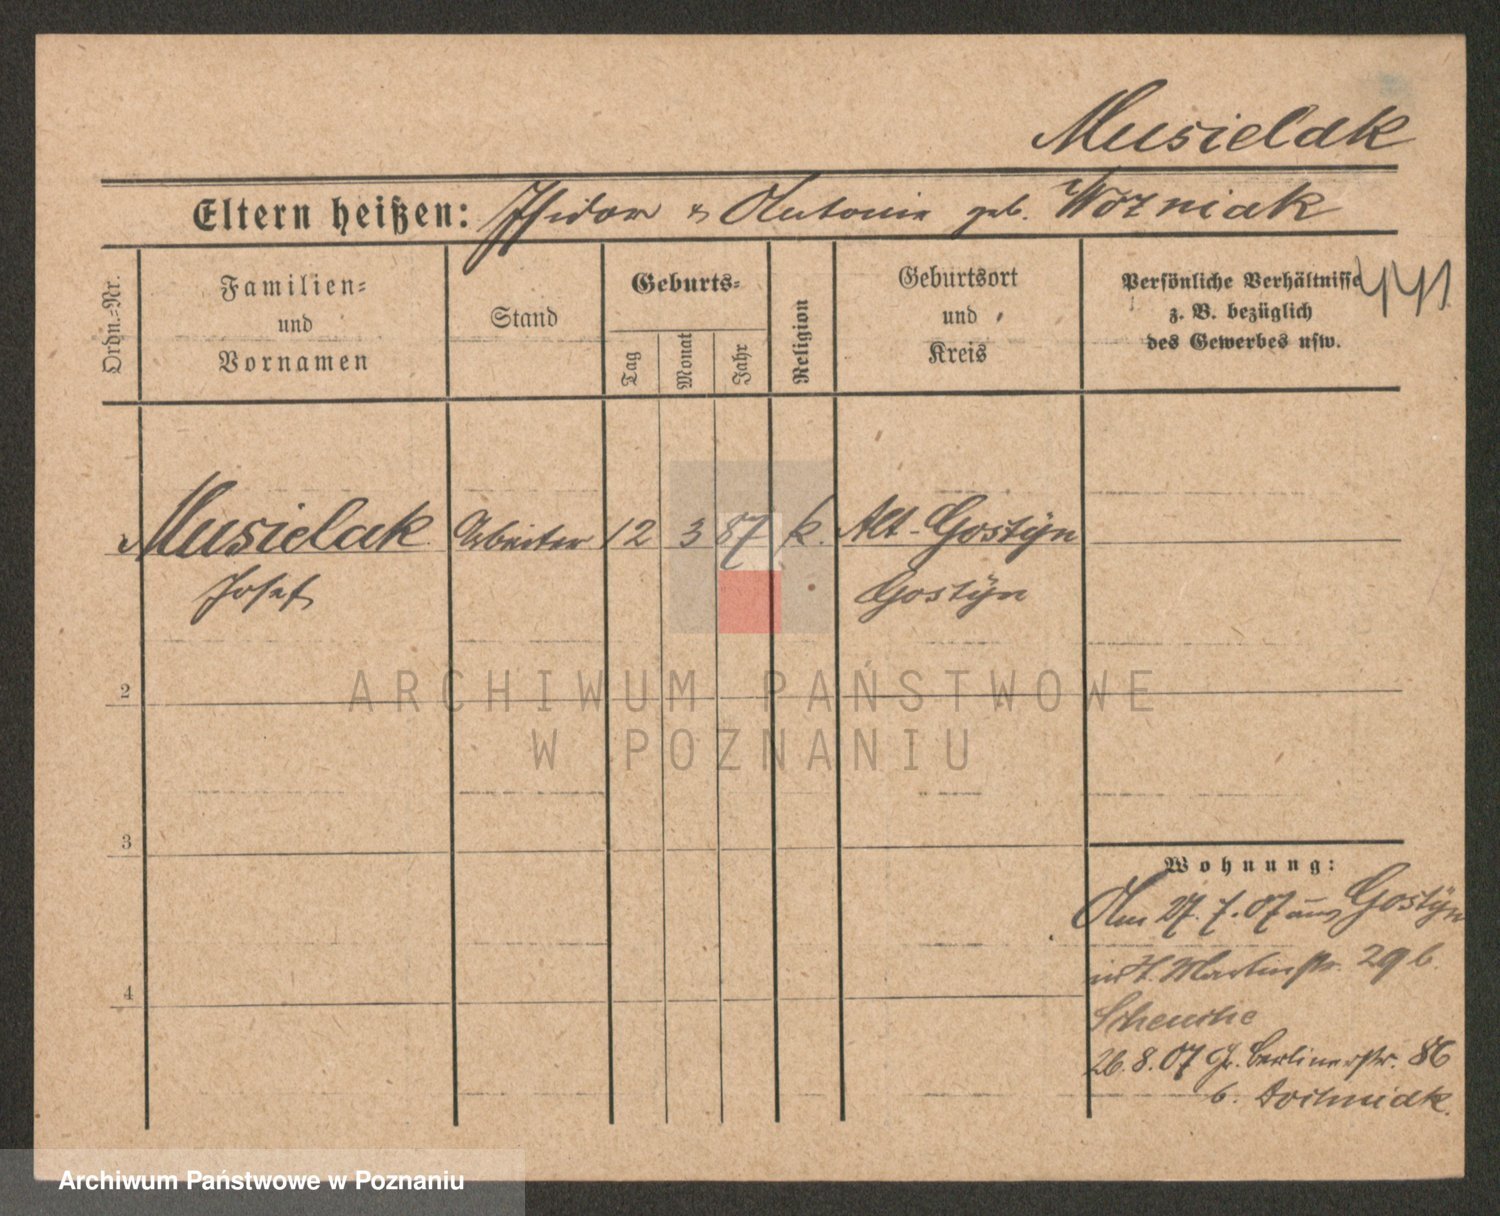 Musielak
Eltern heißen: Isidor & Antonie geb. Wozniak
Ordn.-Nr.
Familien-
und
Vornamen
Stand
Geburts-
Tag
Monat
Jahr
Religion
Geburtsort
und
Kreis
Persönliche Verhältnisse
z. B. bezüglich
des Gewerbes usw.
441
Musielak Arbeiter 12 3 87 k. Alt-Gostÿn
Josef Gostÿn
2
ARCHIWUM PAŃSTWOWE
W POZNANIU
3
4
Wohnung:
Am 27. 7. 07 aus Gostÿn
Martinstr. 29 b.
26. 8. 07 Gr. Berlinerstr. 86
b.
Archiwum Państwowe w Poznaniu